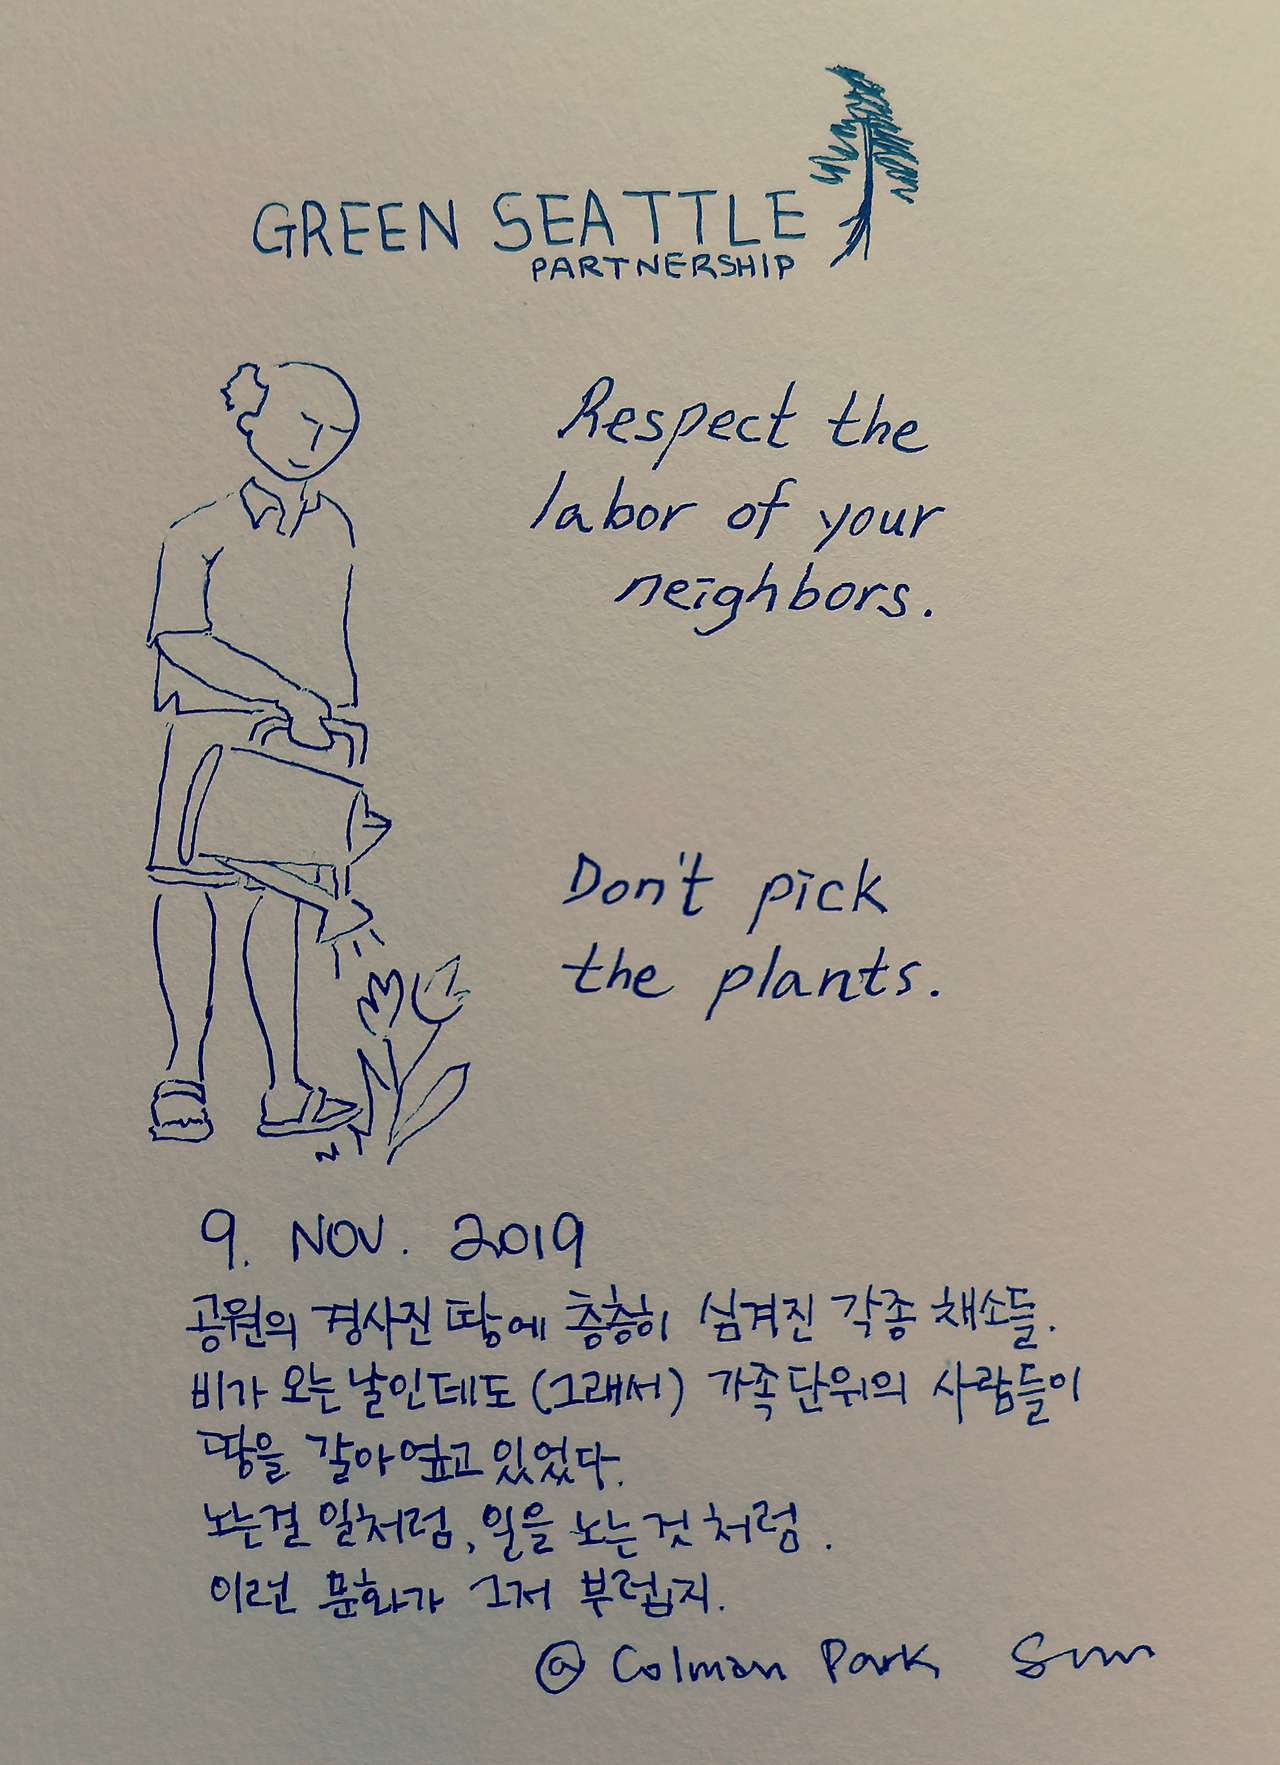 GREEN SEATTLE
PARTNERSHIP
Respect the
labor of your
neighbors.
Don't pick
the plants.
9. NOV. 2019
공원의 경사진 땅에 층층히 심겨진 각종 채소들.
비가 오는 날인데도 (그래서) 가족단위의 사람들이
땅을 갈아엎고 있었다.
노는걸 일처럼, 일을 노는것처럼.
이런 문화가 그저 부럽지.
@ Colman Park